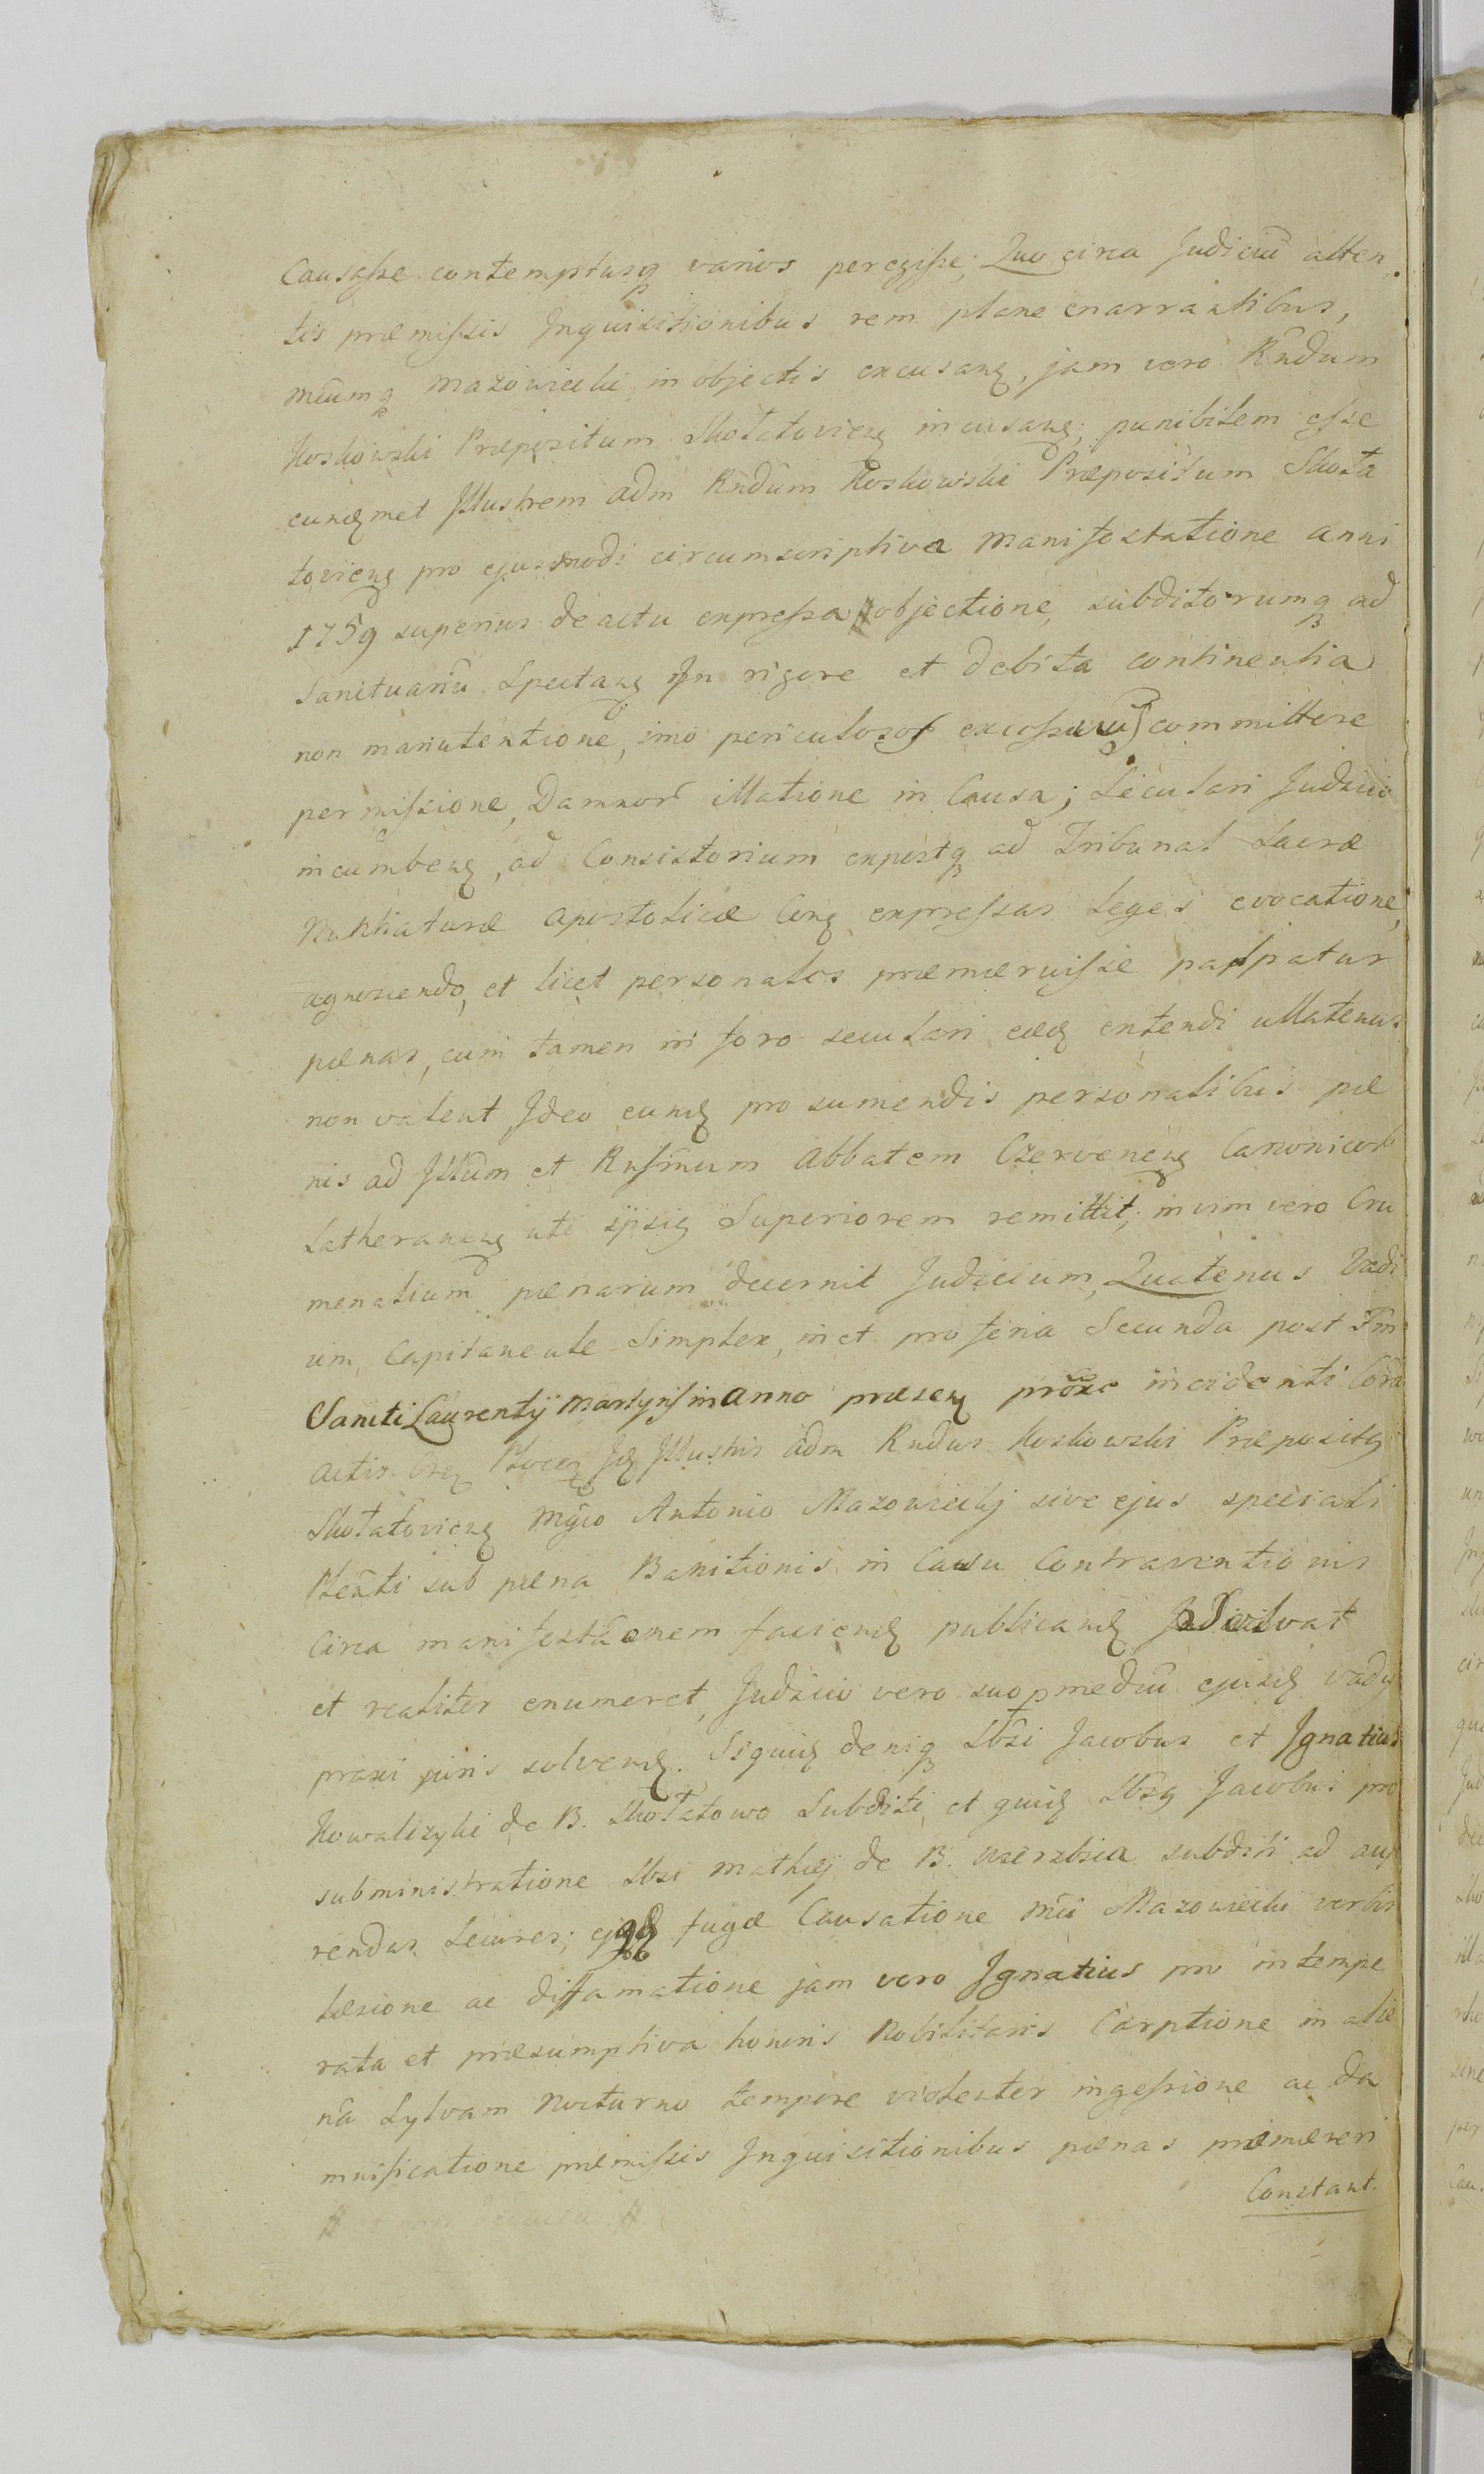 Causasse contemptusq varios peregisse; Quo circa Judiciũ atten
tis præmissis Inquisitionibus rem plane enarrantibus,
Mazowiecki in objectis excusanđ, jam vero Rndum
Koskowski Præpositum Skołatovienę incusanđ; punibilem esse
eundemet Illustrem adm Rndum Koskowski Præpositum Skoła
tovienę pro ejusmodi circumscriptiva Manifestatione anni
1759 superius de actu expressa # objectione, subditorumq ad
Sanctuariũ Spectanę in rigore et debita continentia
non manutentione, imo periculosos committere
permissione, Damnor illatione in Causa; Seculari Judicio
incumbenę, ad Consistorium expostq ad Tribunal Sacræ
Nuntiaturæ Apostolicæ expressas Leges evocatione,
agnoscendo, et licet personales præmeruisse palpatur
pœnas, cum tamen in foro seculari extendi ullatenus
non valent Ideo eundę pro sumendis personalibus pœ
nis ad Illum et Rnsmum Abbatem Czervenenę Canonicor
Latheranenę uti ipsię Superiorem remittit; in vim vero Cru
menalium pœnarum decernit Judicium, Quatenus Vadi
um Capitaneale Simplex, in et pro feria Secunda post Fm
Sancti Laurentij Martyris in anno præsenę proxe incidenti Cora
actis Illustris adm Rndus Koskowski Præpositę
Skołatovienę Mgco Antonio Mazowieckj sive ejus speciali
Pleñti sub pœna Banitionis in Causa Contraventionis
Circa manifestãonem faciendę publicandę
et realiter enumeret, Judicio vero suo p mediũ ejusdę vadij
praxi juris solvendę. Siquidę deniq Lbsi Jacobus et Ignatius
Kowalczyki de B. Skołatowo Subditi, et quidę Lbsę Jacobus pro
subministratione Lbsi Mathiæ de B. subditi ad aufe
rendas Secures; fugæ Causatione Mci Mazowiecki verbis
læsione ac diffamatione jam vero Ignatius pro intempe
rata et præsumptiva honoris Nobilitaris Carptione in alie
nã Sylvam Nocturno tempore violenter ingessione ac da
mnificatione præmissis Inquisitionibus pœnas præmereri
Constant.